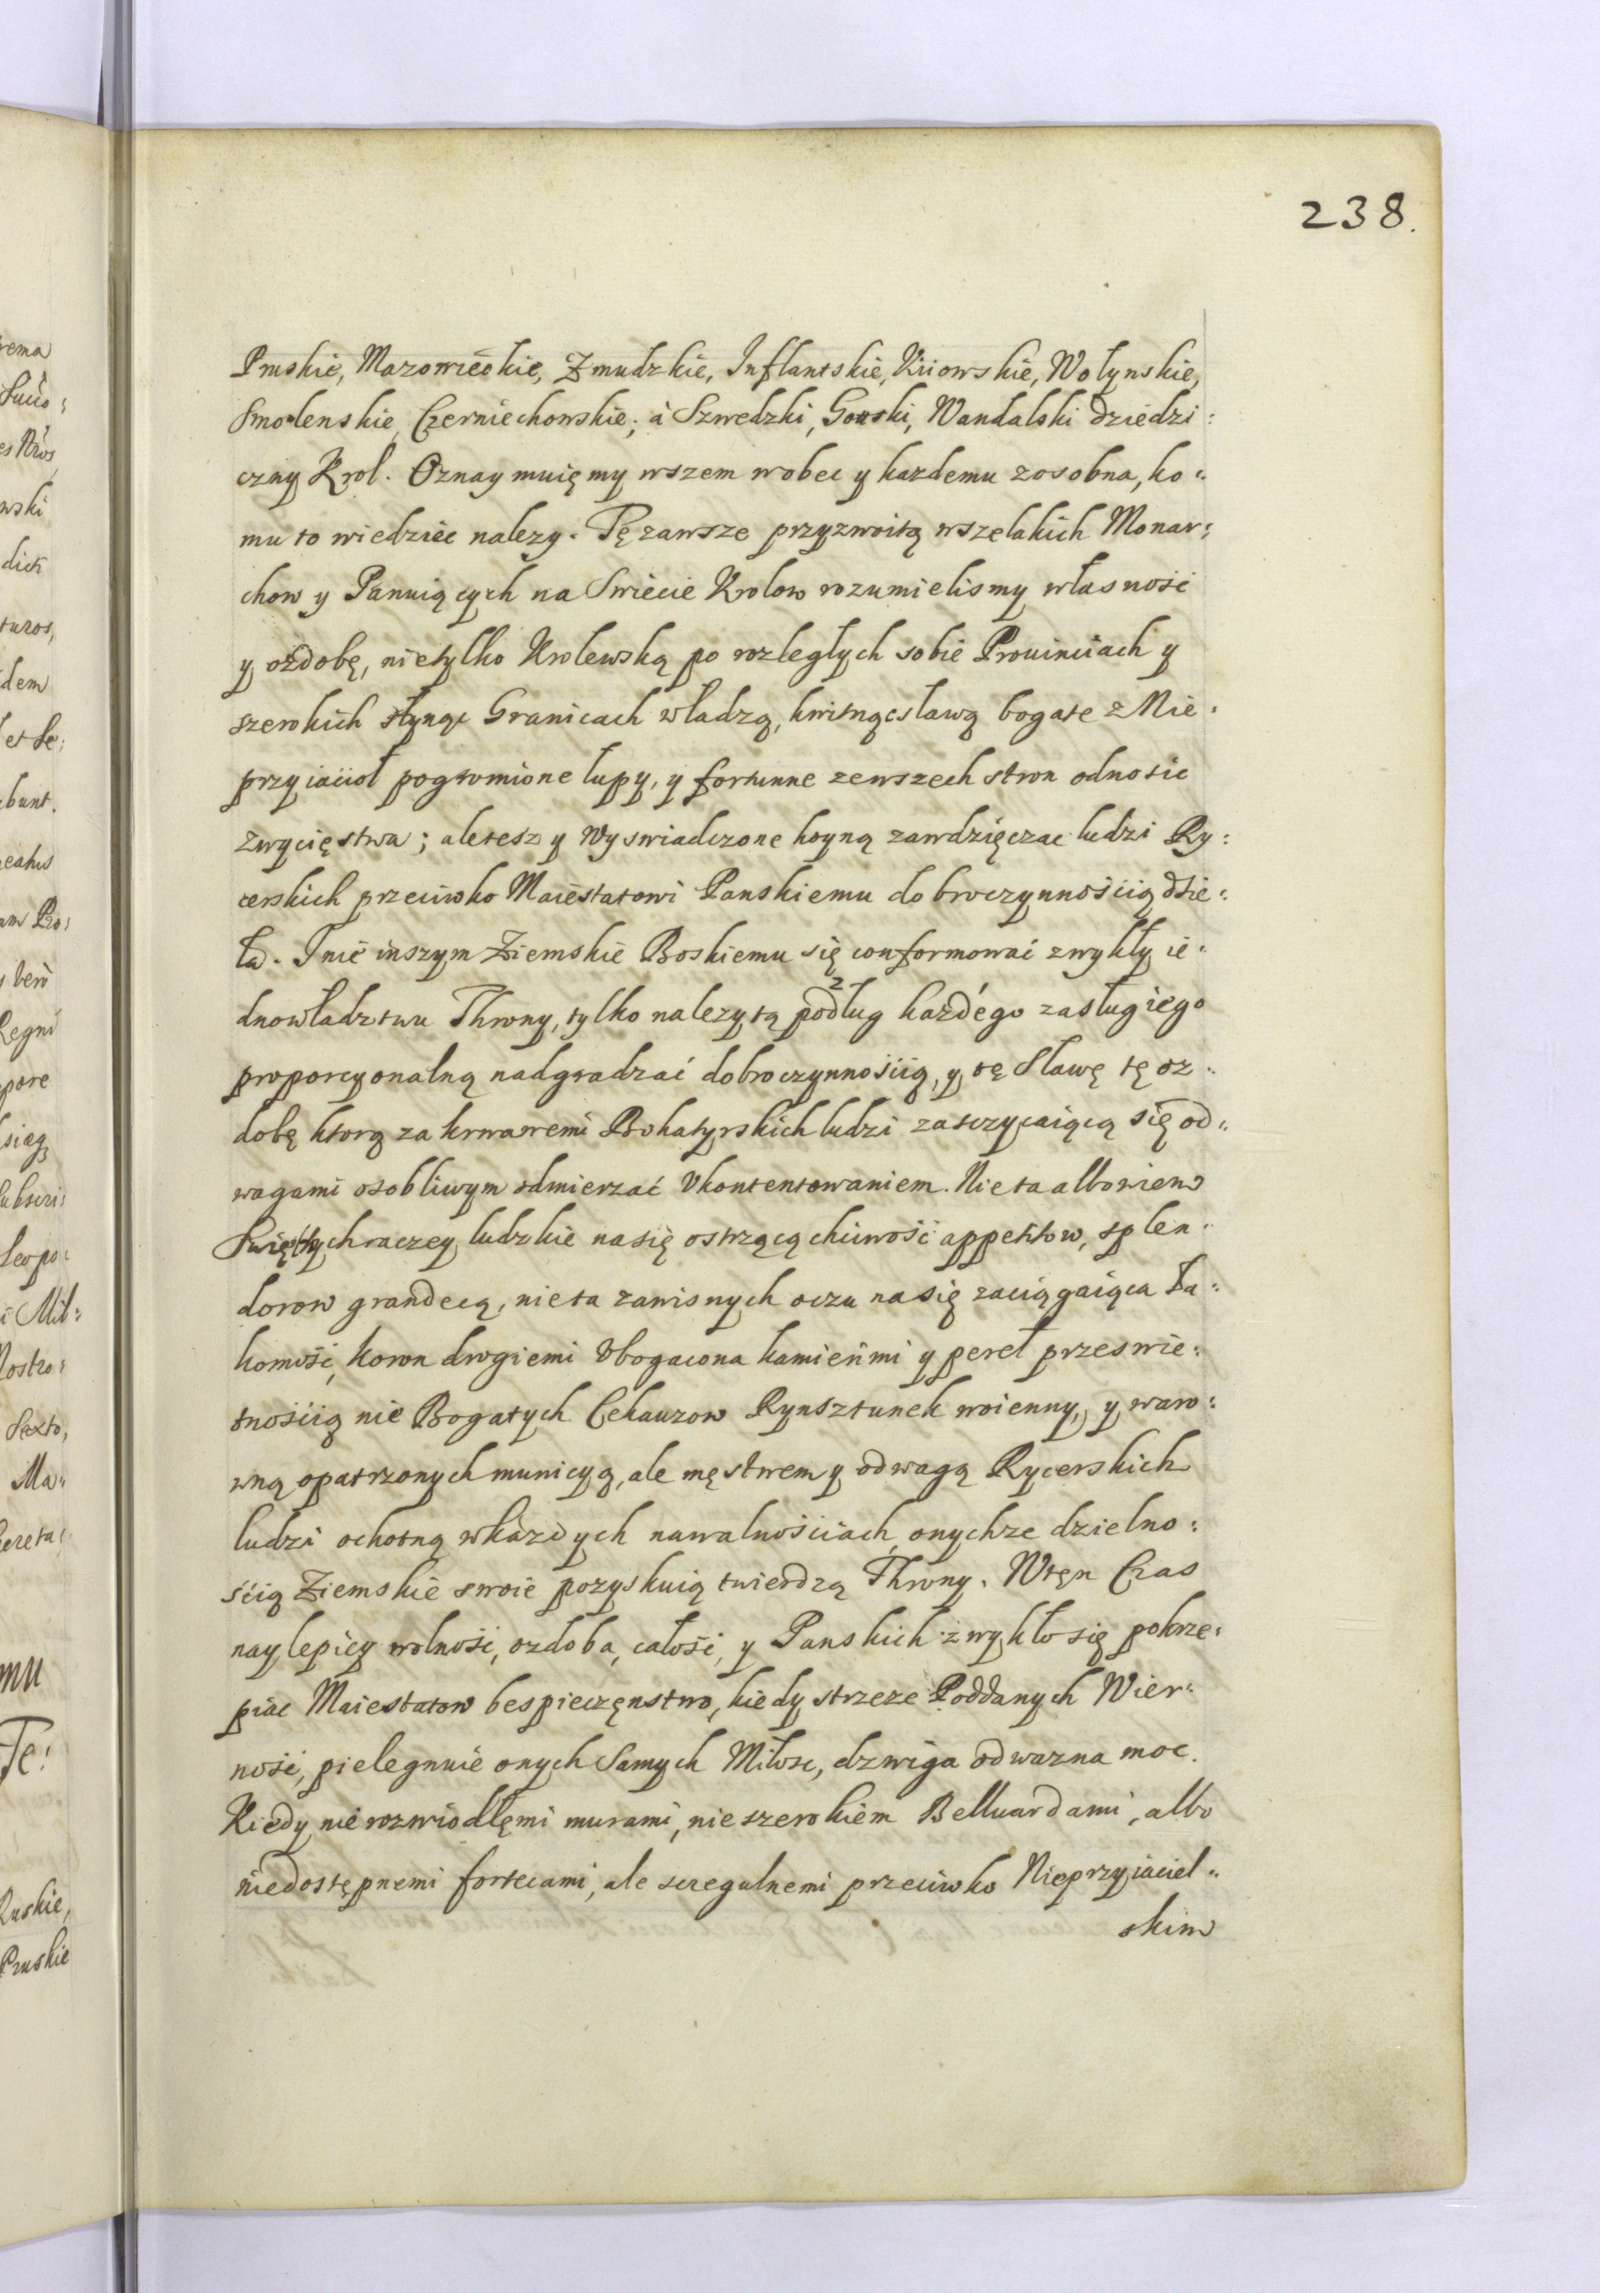 238.
Pruskie, Mazowieckie, Zmudzkie, Inflantskie, Kiiowskie, Wołynskie,
Smolenskie, Czerniechowskie; à Szwedzki, Gotski, Wandalski dziedzi:
czny Krol. Oznaymuięmy wszem wobec y kazdemu zosobna, ko:
mu to wiedziec nalezy. Tę zawsze przyzwoitą wszelakich Monar:
chow y Panuiących na Swiecie Krolow rozumielismy własność
y ozdobę, nietylko Krolewską po rozległych sobie Prouinciach y
szerokich słynąc Granicach władzą, kwitnąc sławą bogate z Nie:
przyiacioł pogromione łupy, y fortunne zewszech stron odnosic
zwycięstwa; ale tesz y Wyswiadczone hoyną zawdzięczac ludzi Ry:
cerskich przeciwko Maiestatowi Panskiemu dobroczynnością dzie:
ła. I nie inszym Ziemskie Boskiemu się conformować zwykły ie:
dnowładztwu Throny, tylko nalezytą podług kazdego zasług iego
proporcyonalną nadgradzać dobroczynnością, y tę Sławę tę oz:
dobę ktorą za krwawemi Bohatyrskich ludzi zasczycaiącą się od:
wagami osobliwym odmierzać Ukontentowaniem. Nie ta albowiem
Swiętych raczey ludzkie na się ostrzącą chciwość appetitow, splen:
dorow grandecą, nie ta zawisnych oczu na się zaciągaiąca Ła:
komość, koron drogiemi Ubogacona kamieńmi y pereł przeswie:
tnością nie Bogatych Cekauzow Rynsztunek woienny, y waro:
wną opatrzonych municyą, ale męstwem y odwagą Rycerskich
ludzi ochotną w kazdych nawalnościach, onychze dzielno:
ścią Ziemskie swoie pozyskuią twierdzą Throny. Wtęn Czas
naylepiey wolność, ozdoba, całość, y Panskich zwykło się pokrze:
piac Maiestatow bespieczęnstwo, kiedy strzeze Poddanych Wier:
ność, pielegnuie onych Samych Miłosc, dzwiga odwazna moc.
Kiedy nie rozwiodłęmi murami, nie szerokiem Belluardami, albo
niedostępnemi fortecami, ale scregulnemi przeciwko Nieprzyiaciel:
skim